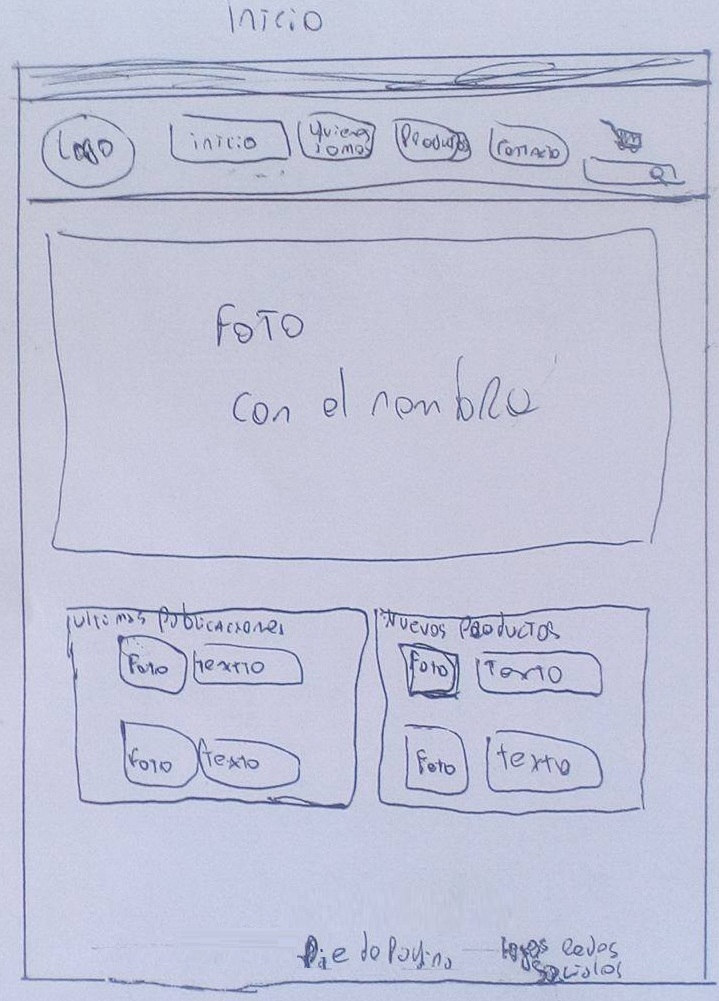 inicio
Logo
inicio
quienes
somos
Productos
contacto
FOTO
con el nombre
ultimas Publicaciones
Foto
texto
Foto
texto
Nuevos Productos
Foto
Texto
Foto
texto
Pie de Pagina
logos redes
sociales